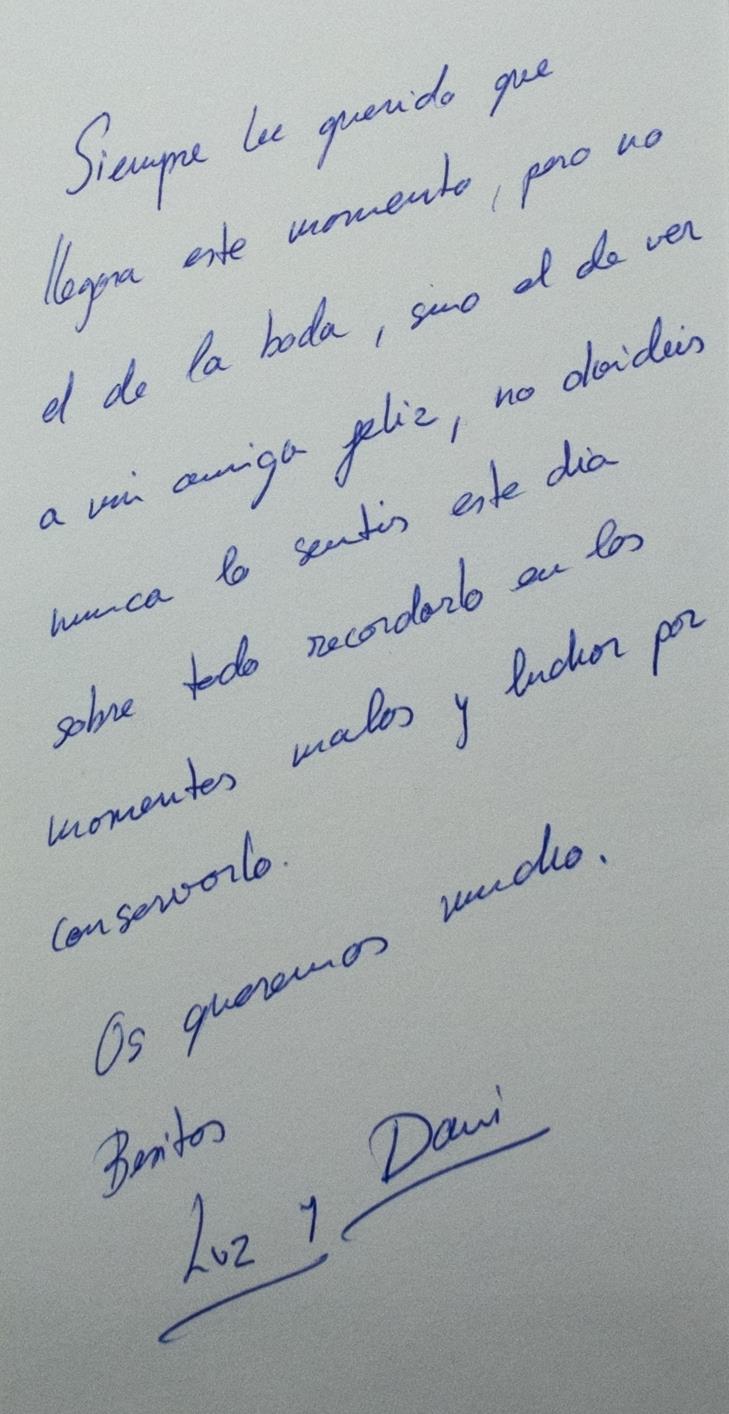 Siempre he querido que
llegara este momento, pero no
el de la boda, sino el de ver
a mi amiga feliz, no olvideis
nunca lo sentis este dia
sobre todo recordarlo en los
momentos malos y luchar por
conservarlo.
Os queremos mucho.
Besitos
Luz y Dani